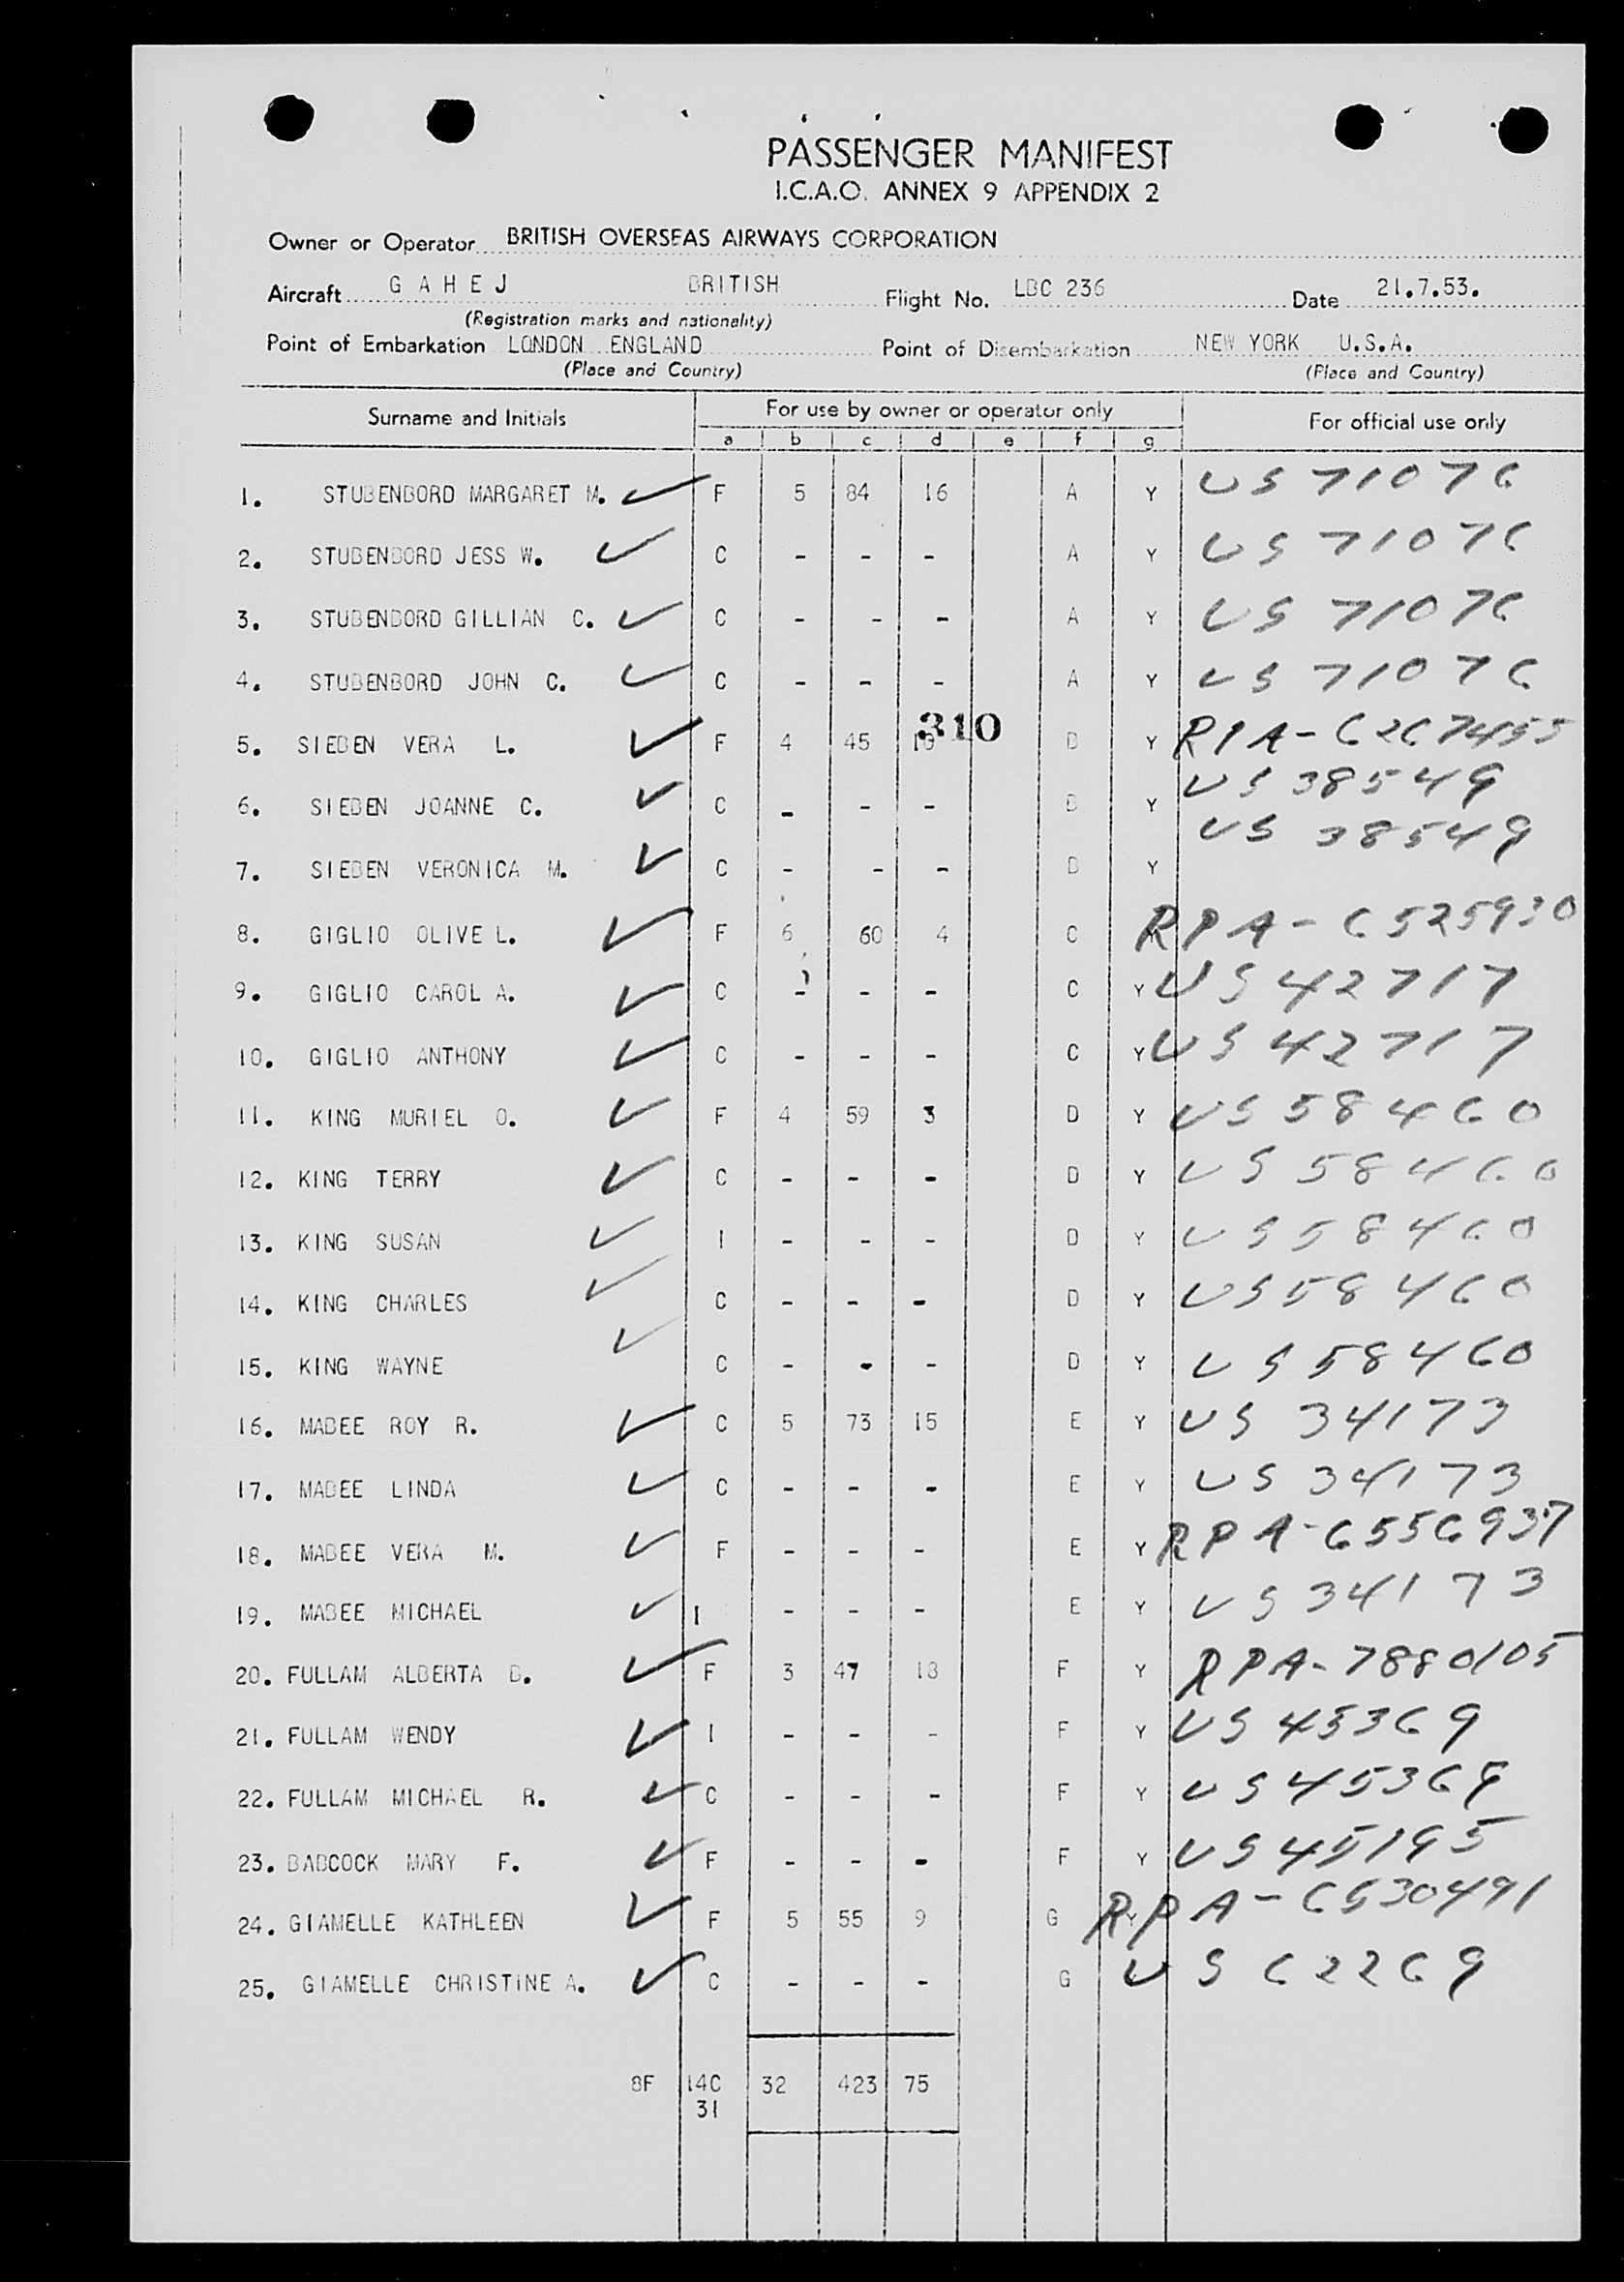 PASSENGER MANIFEST
I.C.A.O. ANNEX 9 APPENDIX 2
Owner or Operator BRITISH OVERSEAS AIRWAYS CORPORATION
Aircraft G A H E J BRITISH Flight No. LBC 236 Date 21.7.53.
(Registration marks and nationality)
Point of Embarkation LONDON ENGLAND Point of Disembarkation NEW YORK U.S.A.
(Place and Country) (Place and Country)
Surname and Initials For use by owner or operator only For official use only
a b c d e f g
1. STUBENBORD MARGARET M. F 5 84 16 A Y US 71076
2. STUBENBORD JESS W. C - - - A Y US 71076
3. STUBENBORD GILLIAN C. C - - - A Y US 71076
4. STUBENBORD JOHN C. C - - - A Y US 71076
310
5. SIEBEN VERA L. F 4 45 10 B Y RPA-6267455
6. SIEBEN JOANNE C. C - - - B Y US 38549
7. SIEBEN VERONICA M. C - - - B Y US 38549
8. GIGLIO OLIVE L. F 6 60 4 C Y RPA-6525930
9. GIGLIO CAROL A. C - - - C Y US 42717
10. GIGLIO ANTHONY C - - - C Y US 42717
11. KING MURIEL O. F 4 59 3 D Y US 58460
12. KING TERRY C - - - D Y US 58460
13. KING SUSAN I - - - D Y US 58460
14. KING CHARLES C - - - D Y US 58460
15. KING WAYNE C - - - D Y US 58460
16. MABEE ROY R. C 5 73 15 E Y US 34173
17. MABEE LINDA C - - - E Y US 34173
18. MABEE VERA M. F - - - E Y RPA-6556937
19. MABEE MICHAEL I - - - E Y US 34173
20. FULLAM ALBERTA B. F 3 47 18 F Y RPA-7880105
21. FULLAM WENDY I - - - F Y US 45369
22. FULLAM MICHAEL R. C - - - F Y US 45369
23. BABCOCK MARY F. F - - - F Y US 45195
24. GIAMELLE KATHLEEN F 5 55 9 G Y RPA-6530491
25. GIAMELLE CHRISTINE A. C - - - G US 62269
8F 14C 32 423 75
3I